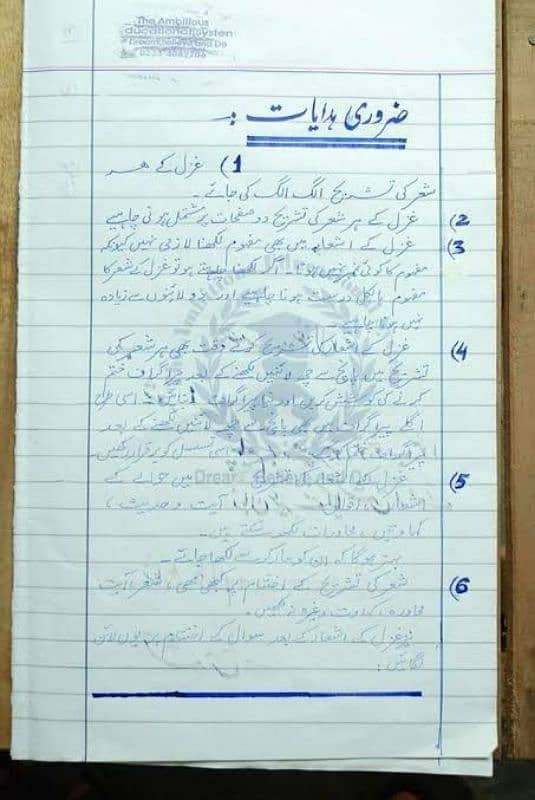 The Ambitious
Educational System
Dream Believe and Do
ضروری ہدایات :۔
1) غزل کے ہر
شعر کی تشریح الگ الگ کی جائے ۔
2) غزل کے ہر شعر کی تشریح دو صفحات پر مشتمل ہونی چاہیے
3) غزل کے اشعار میں بھی مفہوم لکھنا لازمی نہیں کیونکہ
مفہوم کا کوئی نمبر نہیں ہوتا ۔ اگر لکھنا چاہتے ہو تو غزل کے شعر کا
مفہوم بالکل درست ہونا چاہیے اور دو لائنوں سے زیادہ
نہیں ہونا چاہیے ۔
4) غزل کے اشعار کی تشریح کرتے وقت بھی ہر شعر کی
تشریح میں پانچ سے چھ لائنیں لکھنے کے بعد پیراگراف ختم
کرنے کی کوشش کریں اور نیا پیراگراف بنائیں ۔ اسی طرح
اگلے پیراگراف میں بھی پانچ سے چھ لائنیں لکھنے کے بعد
اسی تسلسل کو برقرار رکھیں
5) غزل کے اشعار کی تشریح میں حوالے کے
اشعار ، اقوال ، آیت و حدیث ،
کہاوتیں ، محاورات لکھ سکتے ہیں ۔
بہتر ہوگا کہ ان کو مارکر سے لکھا جائے ۔
6) شعر کی تشریح کے اختتام پر کبھی بھی ، شعر ، آیت
محاورہ ، کہاوت وغیرہ نہ لکھیں ۔
غزل کے اشعار کے بعد سوال کے اختتام پر یوں لائن
لگائیں :